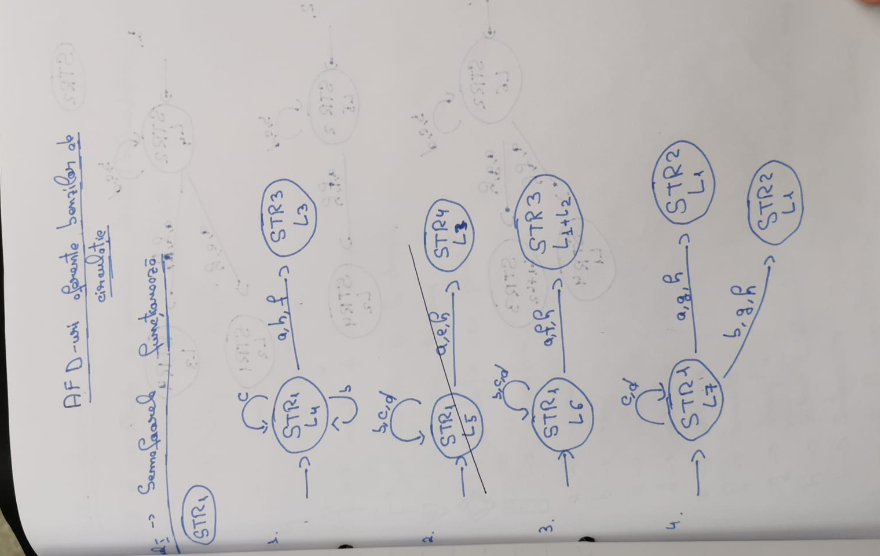 AFD-uri aferente benzilor de
circulație
→ Semafoarele funcționează.
STR1
1.
c
STR1
L4
b
a, h, f
STR3
L3
2.
b, c, d
STR1
L5
a, e, h
STR4
L3
3.
b, c, d
STR1
L6
a, f, h
STR3
L1+L2
4.
c, d
STR1
L7
a, g, h
STR2
L1
b, g, h
STR2
L1